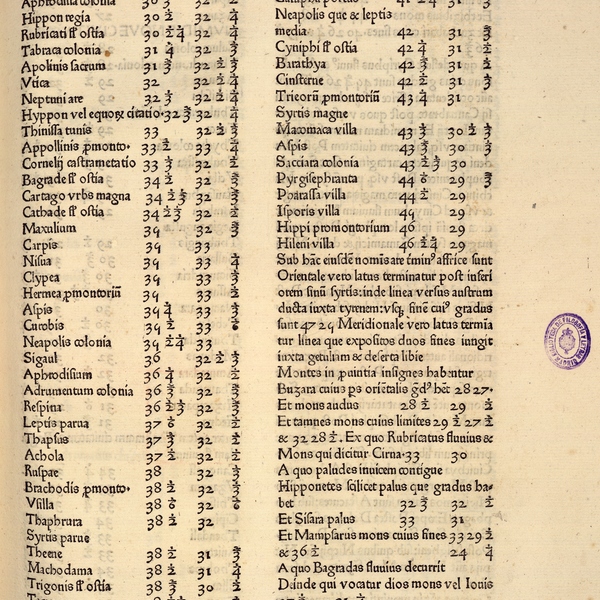 Aphrodisia colonia 30 ⅓ 32 ½
Hippon regia 30 ½ 32 ¼
Rubricati fl' ostia 30 ½ ¼ 32 ¼
Tabraca colonia 31 ¼ 32 ⅓
Apolinis sacrum 31 ⅓ 32 ½ ⅓
Vtica 32 32 ½ ¼
Neptuni are 32 ⅓ 32 ½ ¼
Hyppon vel equoꝝ citatio·32 ⅓ 32 ¼
Thinissa tunis 33 32 ½ ⅓
Appollinis ꝓmonto· 33 ½ 33 ¼
Cornelij castrametatio 33 ⅓ 32 ½
Bagrade fl' ostia 34 ½ 32 ⅓
Cartago vrbs magna 34 ½ ⅓ 32 ⅓
Cathade fl' ostia 34 ½ ⅓ 32 ½
Maxulium 34 ⅓ 32 ⅓
Carpis 35 33
Nisua 35 33 ¼
Clypea 35 33 ⅓
Hermea ꝓmontoriū 35 33 ½
Aspis 35 ¼ 33 ⅓
Curobis 35 ½ 33
Neapolis colonia 35 ½ ¼ 33
Sigaul 36 32 ½ ⅓
Aphrodisium 36 ¼ 32 ½
Adrumentum colonia 36 ⅓ 32 ⅓
Respina 36 ½ ⅓ 32 ⅓
Leptis parua 37 ⅙ 32 ½
Thapsus 37 ⅓ 32 ½
Achola 37 ½ 32 ½
Ruspae 38 32 ⅓
Brachodis ꝓmonto· 38 ½ 32 ⅓
Vsilla 38 ⅙ 32 ⅙
Thaphrura 38 ½ 32
Syrtis parue
Theene 38 ½ 31 ⅓
Machodama 38 ½ 31 ¼
Trigonis fl' ostia 38 ⅓ 30 ½
Neapolis que & leptis
media 42 31 ⅓
Cyniphi fl' ostia 42 ¼ 31 ½
Barathya 42 ⅓ 31 ½
Cinsterne 42 ½ 31 ⅓
Trieorū ꝓmontoriū 43 ¼ 31
Syrtis magne
Macomaca villa 43 ⅓ 30 ½ ⅓
Aspis 43 ⅓ 30 ⅓
Saccara colonia 43 ½ ⅓ 30
Pyrgisephranta 44 ⅙ 29 ⅓
Pharassa villa 44 ½ 29
Isporis villa 45 29
Hippi promontorium 46 29
Hileni villa 46 ½ ¼ 29
Sub hāc eiusdē nomīs are t̄min⁹ affrice sunt
Orientale vero latus terminatur post inferi
orem sinū syrtis: inde linea versus austrum
ducta iuxta tyrenem: vsqꝫ sinē cui⁹ gradus
sunt 47 25 Meridionale vero latus termīa
tur linea que expositos duos fines iungit
iuxta getuliam & deserta libie
Montes in ꝓuintia insignes habentur
Buzara cuius ps oriētalis gd⁹ hēt 28 27·
Et mons audus 28 ½ 29 ½
Et tamnes mons cuius limites 29 ½ 27 ½
& 32 28 ½. Ex quo Rubricatus fluuius &
Mons qui dicitur Cirna·33 30
A quo paludes inuicem contigue
Hipponetes scilicet palus que gradus ha-
bet 32 ⅓ 32 ½
Et Sisara palus 33 31
Et Mampsarus mons cuius fines 33 29 ½
& 36 ½ 24 ¼
A quo Bagradas fluuius decurrit
Dainde qui vocatur dios mons vel Iouis